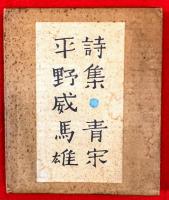 詩集 青宋
平野威馬雄